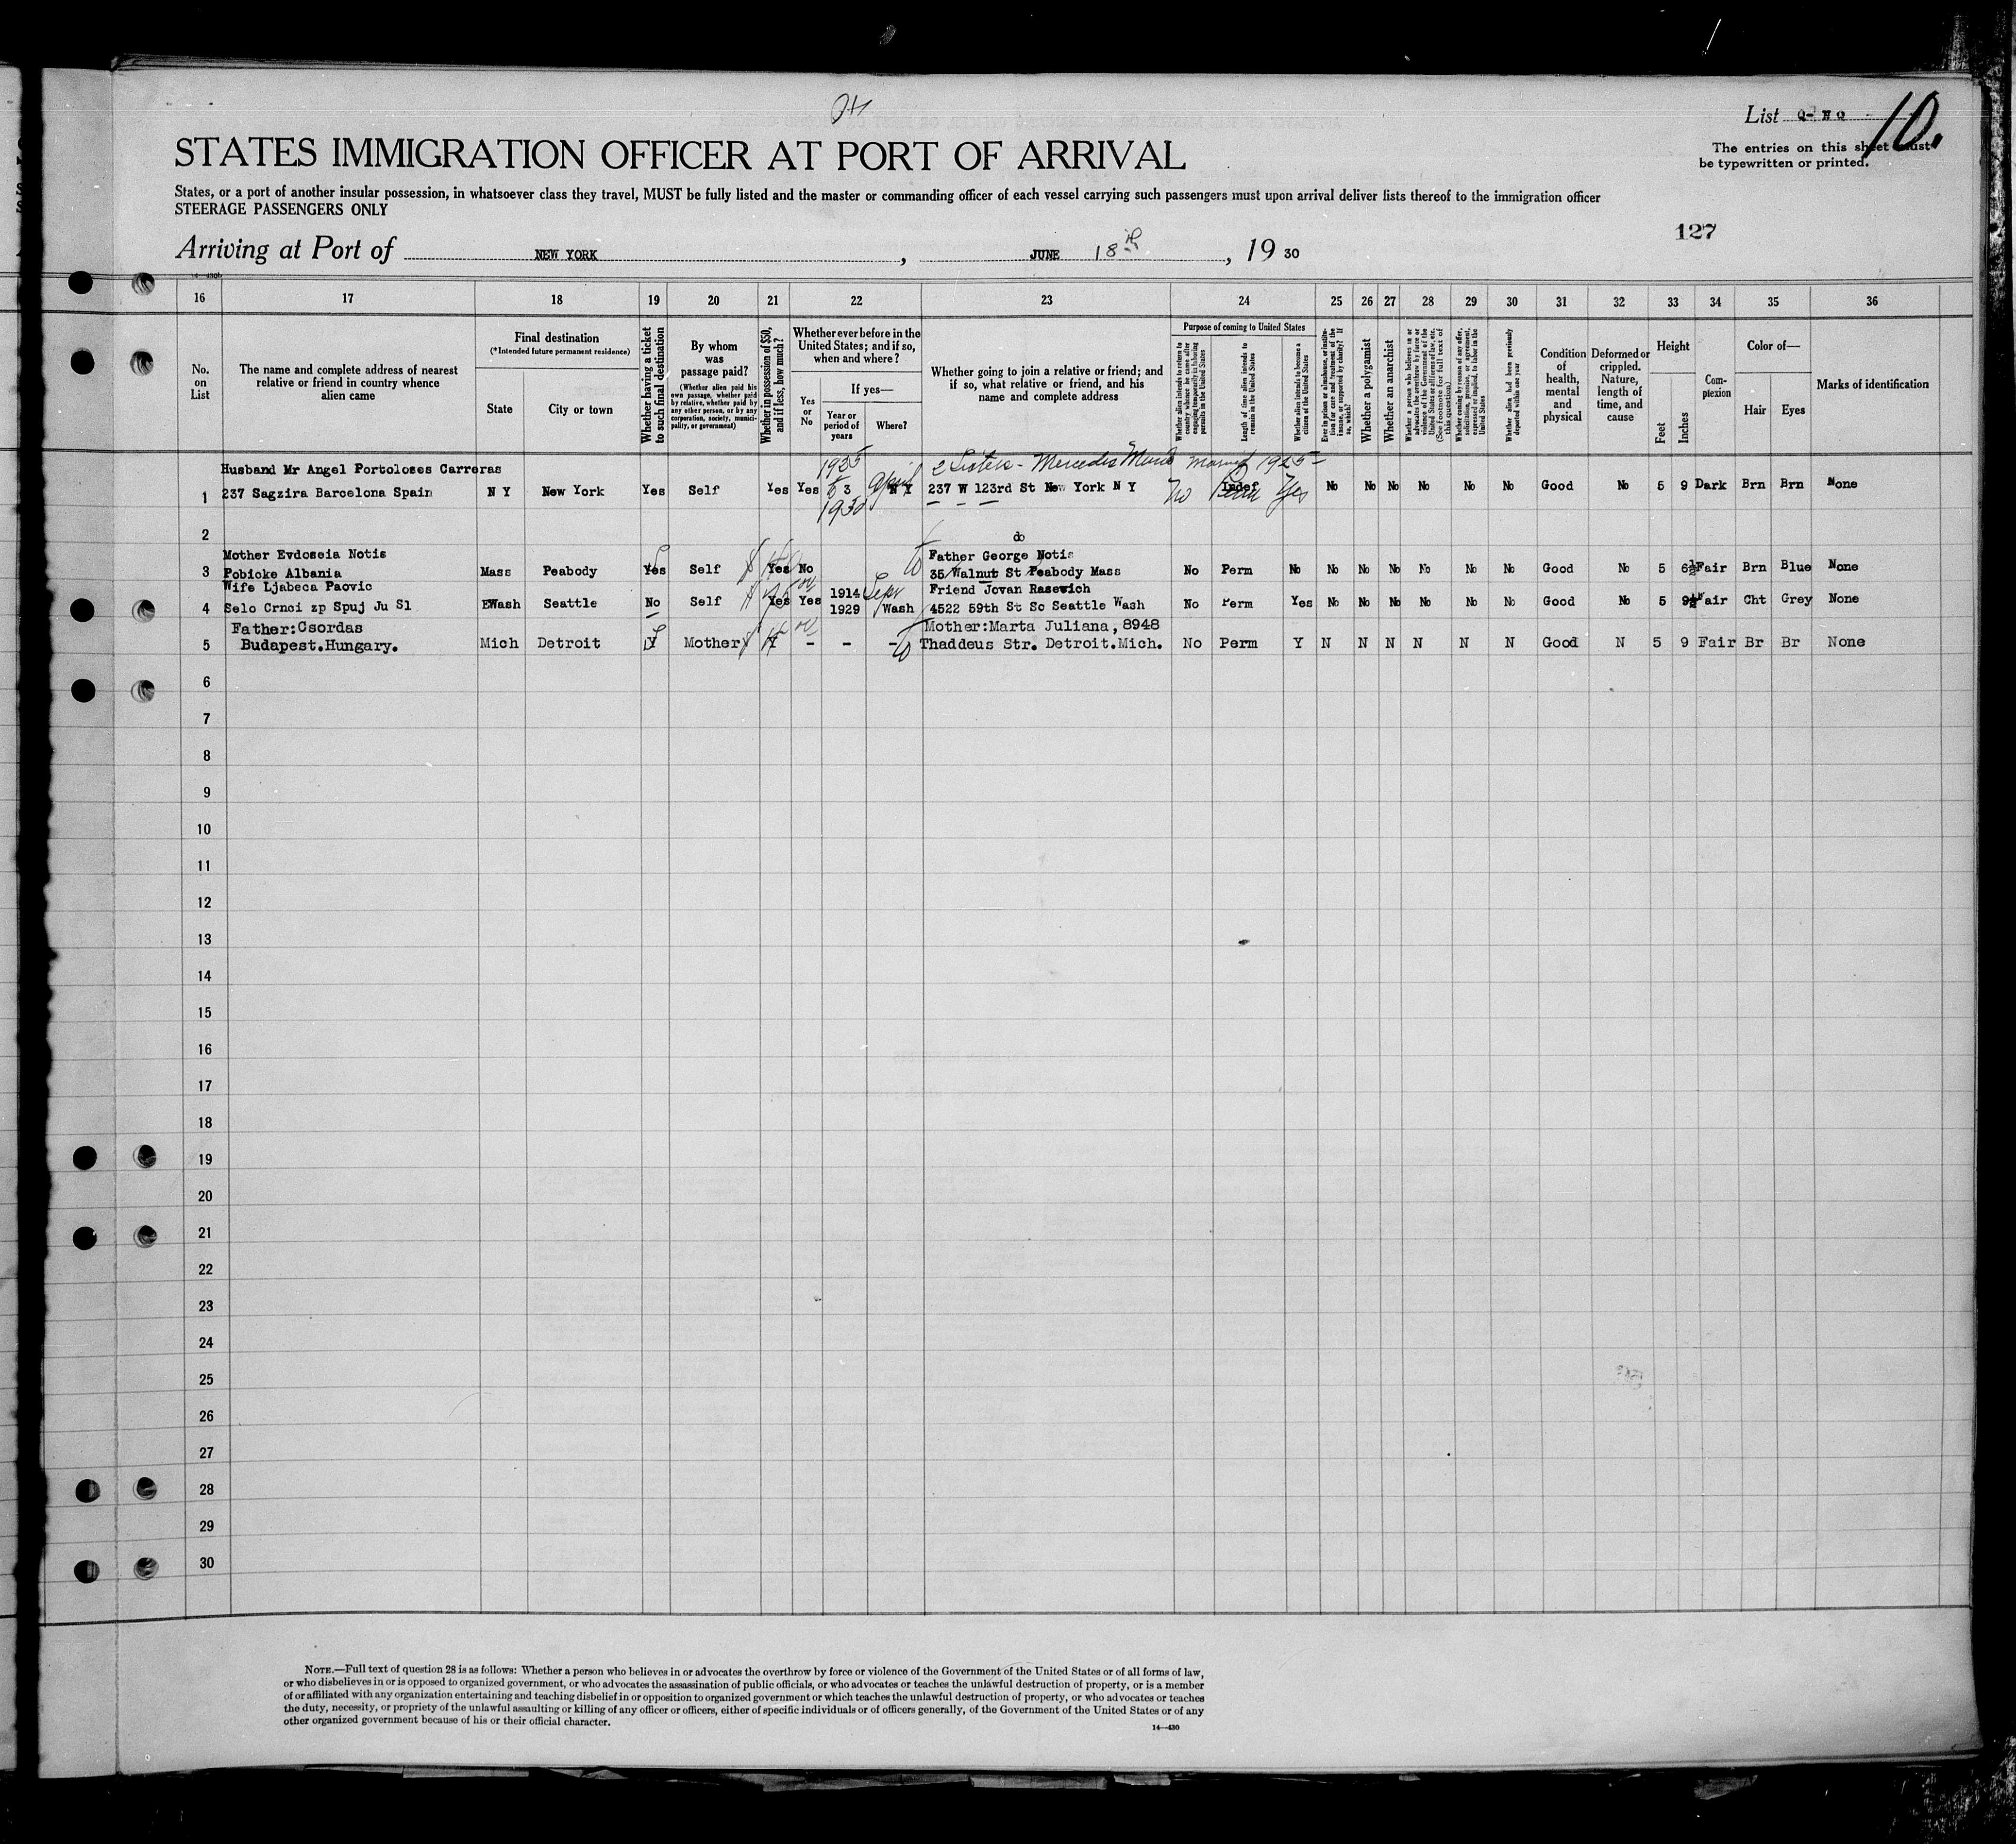 List Q-NQ 10.
The entries on this sheet must
be typewritten or printed.
STATES IMMIGRATION OFFICER AT PORT OF ARRIVAL
States, or a port of another insular possession, in whatsoever class they travel, MUST be fully listed and the master or commanding officer of each vessel carrying such passengers must upon arrival deliver lists thereof to the immigration officer
STEERAGE PASSENGERS ONLY
127
Arriving at Port of NEW YORK, JUNE 18th, 19 30
16 17 18 19 20 21 22 23 24 25 26 27 28 29 30 31 32 33 34 35 36
No.
on
List
The name and complete address of nearest
relative or friend in country whence
alien came
Final destination
(*Intended future permanent residence)
State
City or town
Whether having a ticket
to such final destination
By whom
was
passage paid?
(Whether alien paid his
own passage, whether paid
by relative, whether paid by
any other person, or by any
corporation, society, munici-
pality, or government)
Whether in possession of $50,
and if less, how much?
Whether ever before in the
United States; and if so,
when and where?
Yes
or
No
If yes—
Year or
period of
years
Where?
Whether going to join a relative or friend; and
if so, what relative or friend, and his
name and complete address
Purpose of coming to United States
Whether alien intends to return to
country whence he came after
engaging temporarily in laboring
pursuits in the United States
Length of time alien intends to
remain in the United States
Whether alien intends to become a
citizen of the United States
Ever in prison or almshouse, or institu-
tion for care and treatment of the
insane, or supported by charity? If
so, which?
Whether a polygamist
Whether an anarchist
Whether a person who believes in or
advocates the overthrow by force or
violence of the Government of the
United States or all forms of law, etc.
(See footnote for full text of
this question)
Whether coming by reason of any offer,
solicitation, promise, or agreement,
expressed or implied, to labor in the
United States
Whether alien had been previously
deported within one year
Condition
of
health,
mental
and
physical
Deformed or
crippled.
Nature,
length of
time, and
cause
Height
Feet
Inches
Com-
plexion
Color of—
Hair
Eyes
Marks of identification
Husband Mr Angel Portoloses Carreras 1925 2 Sisters - Mercedes married 1925-
1 237 Sagzira Barcelona Spain N Y New York Yes Self Yes Yes 3 April N Y 237 W 123rd St New York N Y No Indef Perm Yes No No No No No No Good No 5 9 Dark Brn Brn None
1930
2
do
Mother Evdoseia Notis Father George Notis
3 Pobicke Albania Mass Peabody Yes Self Yes No 35 Walnut St Peabody Mass No Perm No No No No No No No Good No 5 6½ Fair Brn Blue None
Wife Ljabeca Paovic 1914 Sept Friend Jovan Rasevich
4 Selo Crnci zp Spuj Ju Sl EWash Seattle No Self Yes Yes 1929 Wash 4522 59th St So Seattle Wash No Perm Yes No No No No No No Good No 5 9½ Fair Cht Grey None
Father:Csordas Mother:Marta Juliana, 8948
5 Budapest.Hungary. Mich Detroit Y Mother Y - - - Thaddeus Str. Detroit.Mich. No Perm Y N N N N N N Good N 5 9 Fair Br Br None
6
7
8
9
10
11
12
13
14
15
16
17
18
19
20
21
22
23
24
25
26
27
28
29
30
NOTE.—Full text of question 28 is as follows: Whether a person who believes in or advocates the overthrow by force or violence of the Government of the United States or of all forms of law,
or who disbelieves in or is opposed to organized government, or who advocates the assassination of public officials, or who advocates or teaches the unlawful destruction of property, or is a member
of or affiliated with any organization entertaining and teaching disbelief in or opposition to organized government or which teaches the unlawful destruction of property, or who advocates or teaches
the duty, necessity, or propriety of the unlawful assaulting or killing of any officer or officers, either of specific individuals or of officers generally, of the Government of the United States or of any
other organized government because of his or their official character.
14—430